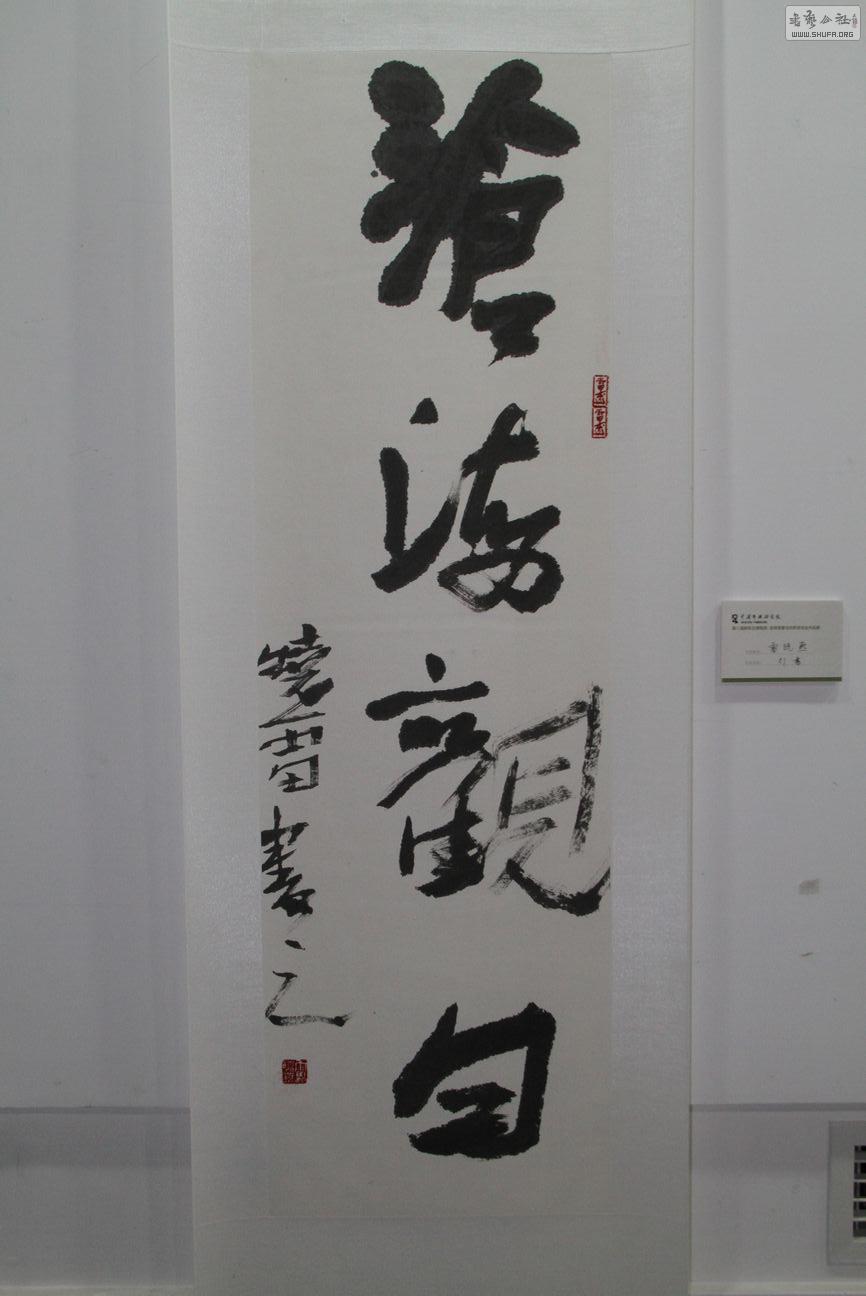 滄海觀日
曉雷書之
書藝公社
WWW.SHUFA.ORG